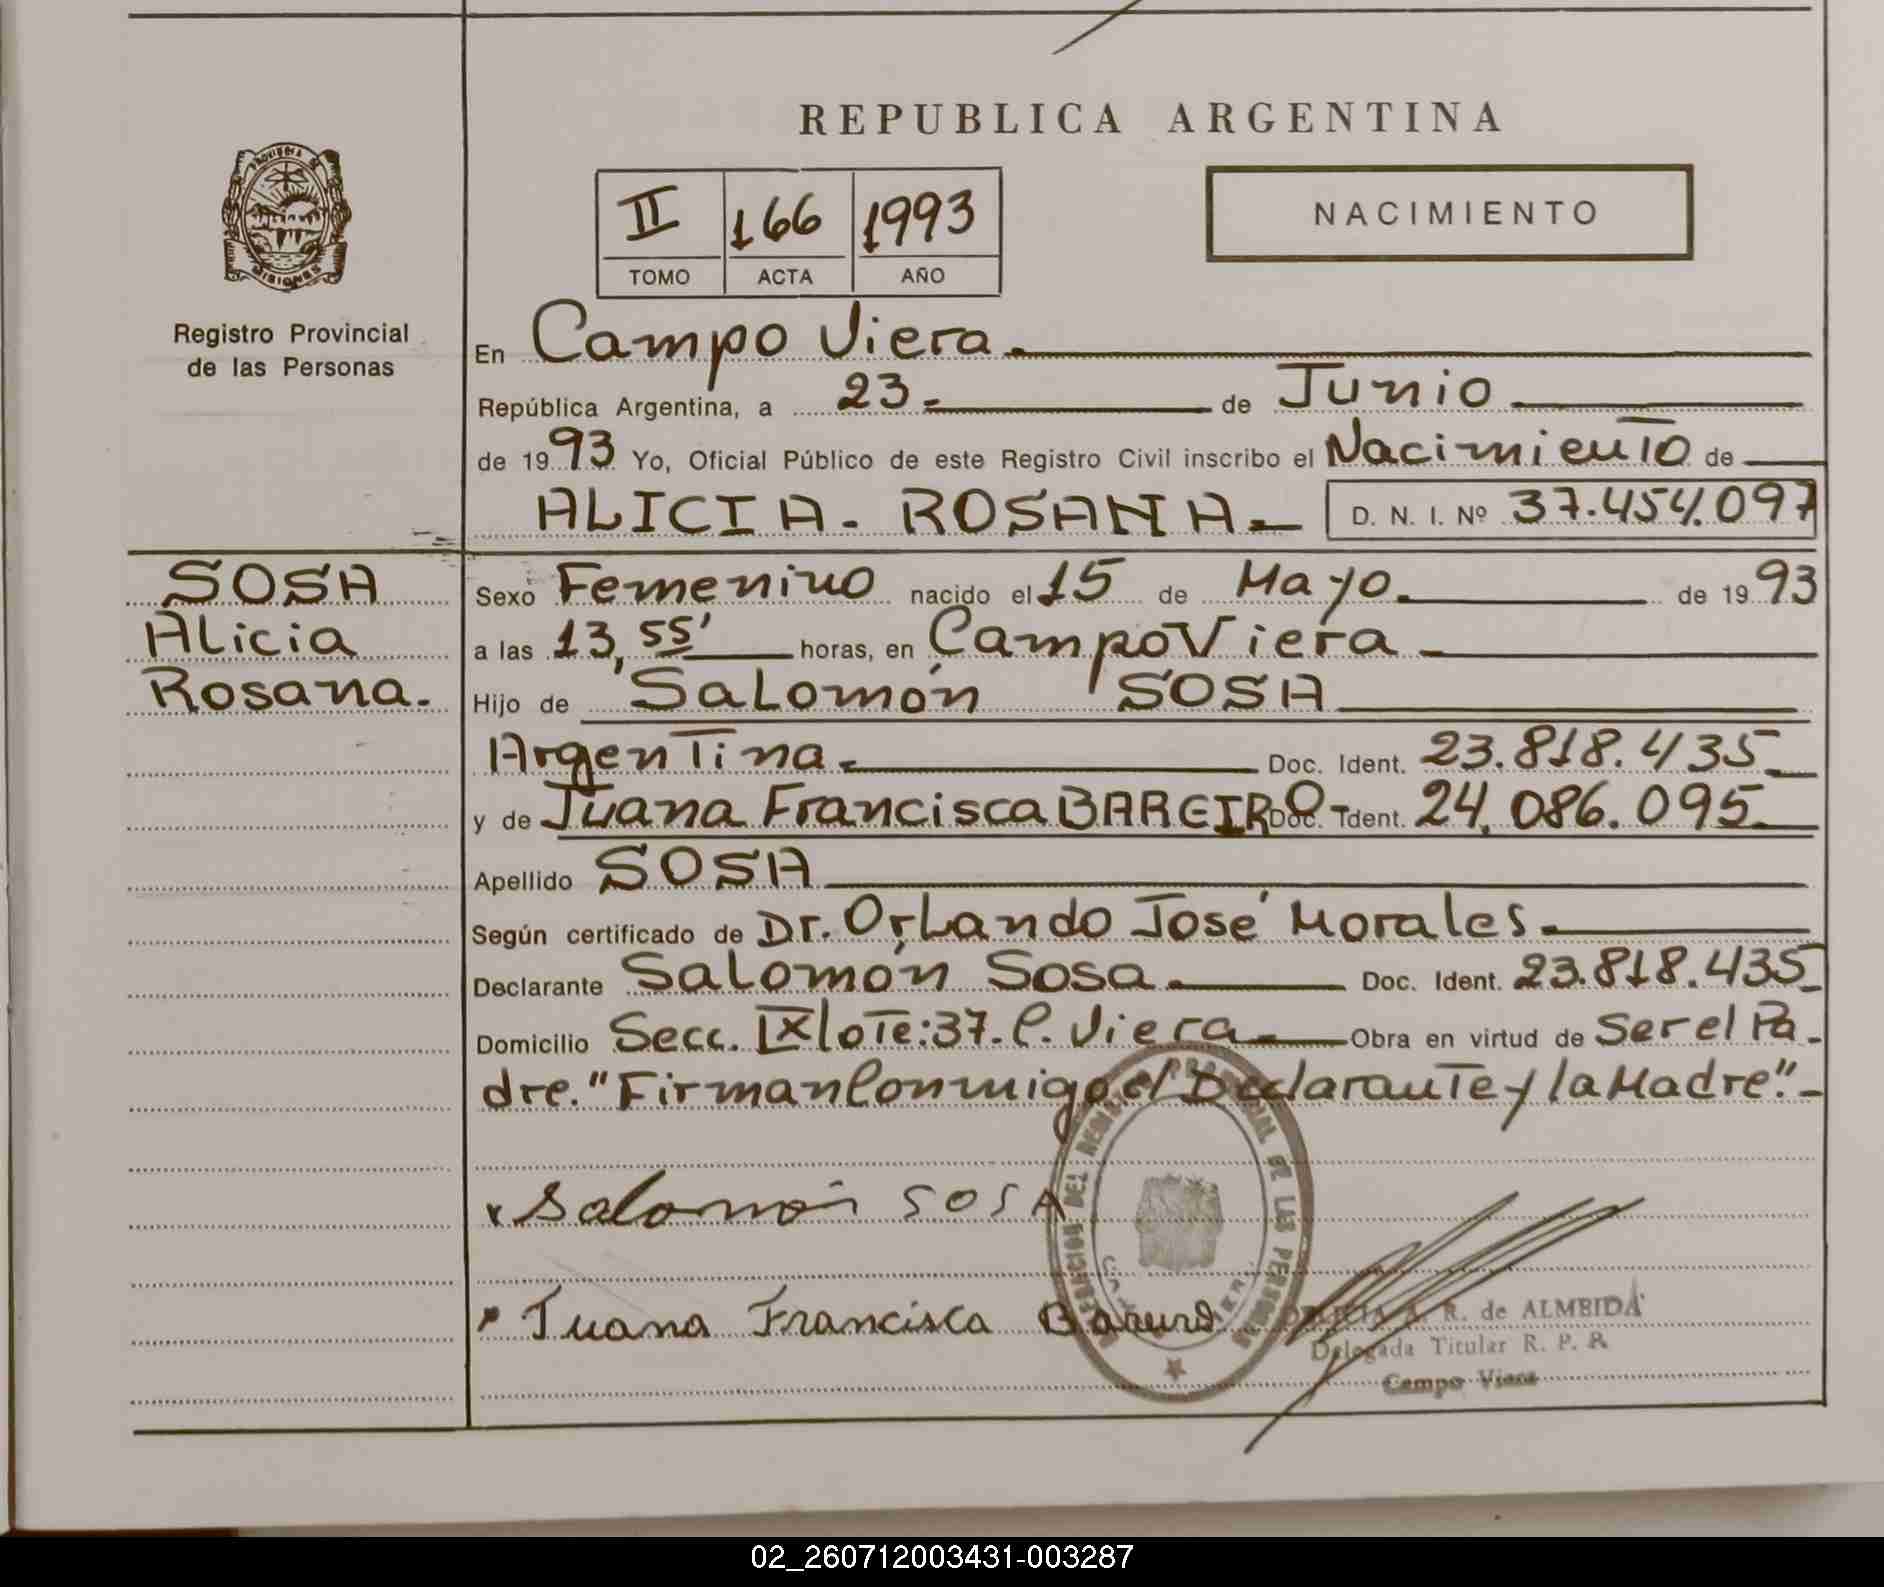 REPUBLICA ARGENTINA
PROVINCIA DE MISIONES
Registro Provincial
de las Personas
II 166 1993
TOMO ACTA AÑO
NACIMIENTO
En Campo Viera.
República Argentina, a 23 de Junio
de 1993 Yo, Oficial Público de este Registro Civil inscribo el Nacimiento de
ALICIA. ROSANA. D. N. I. Nº 37.454.097
SOSA
Alicia
Rosana.
Sexo Femenino nacido el 15 de Mayo. de 1993
a las 13,55' horas, en Campo Viera
Hijo de Salomón SOSA
Argentina. Doc. Ident. 23.818.435
y de Juana Francisca BAREIRO Doc. Ident. 24.086.095
Apellido SOSA
Según certificado de Dr. Orlando José Morales.
Declarante Salomón Sosa. Doc. Ident. 23.818.435
Domicilio Secc. IX lote:37. C. Viera Obra en virtud de Ser el Pa-
dre. "Firman Conmigo el Declarante y la Madre".-
Salomón SOSA
Juana Francisca
DELEGACION DEL REGISTRO PROVINCIAL DE LAS PERSONAS
A. R. de ALMEIDA
Delegada Titular R. P. P.
Campo Viera
02_260712003431-003287